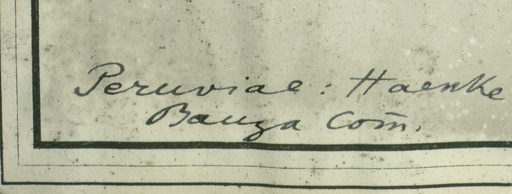 Peruviae : Haenke
Bauza Com̄.